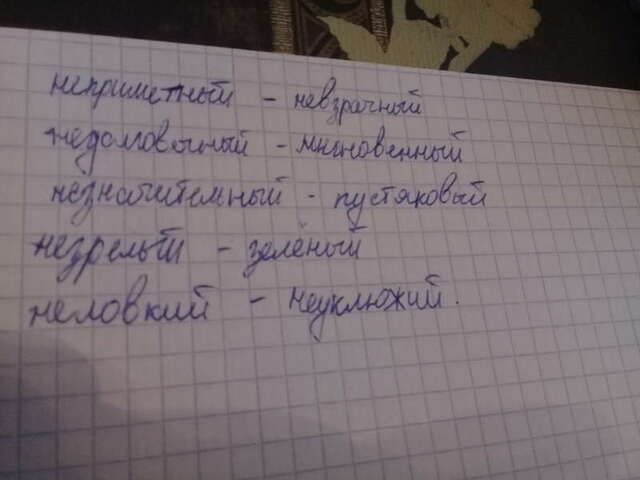 неприметный - невзрачный
недолговечный - мгновенный
незначительный - пустяковый
незрелый - зелёный
неловкий - неуклюжий.